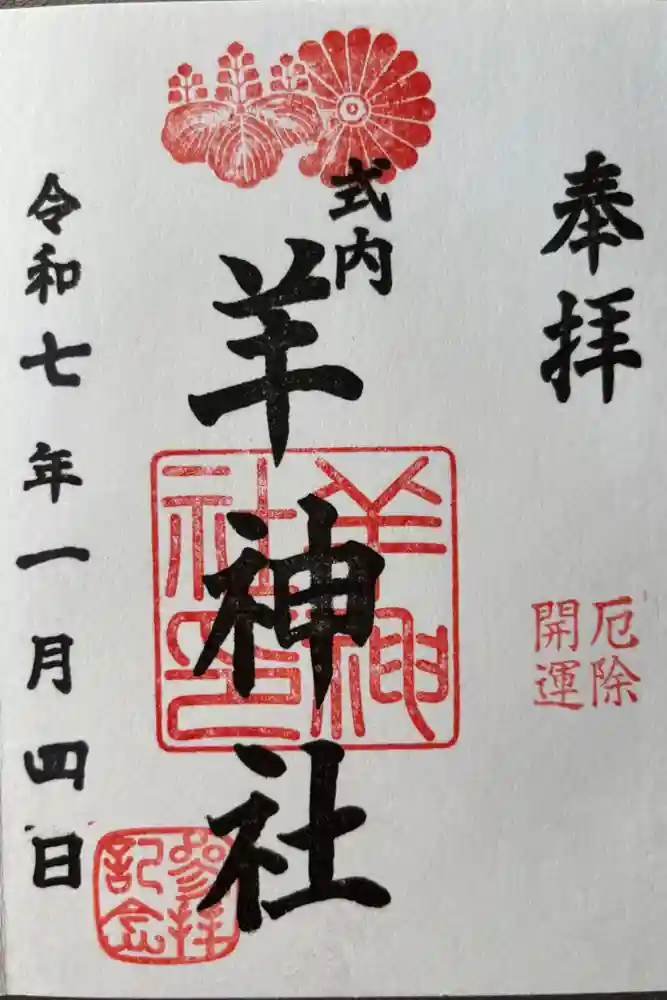 奉拝
厄除
開運
式内
羊神社
羊神社印
参拝
記念
令和七年一月四日